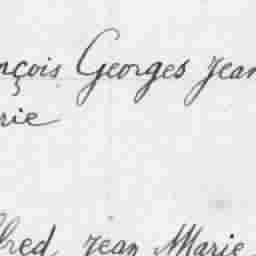 nçois Georges jean
rie
fred jean Marie